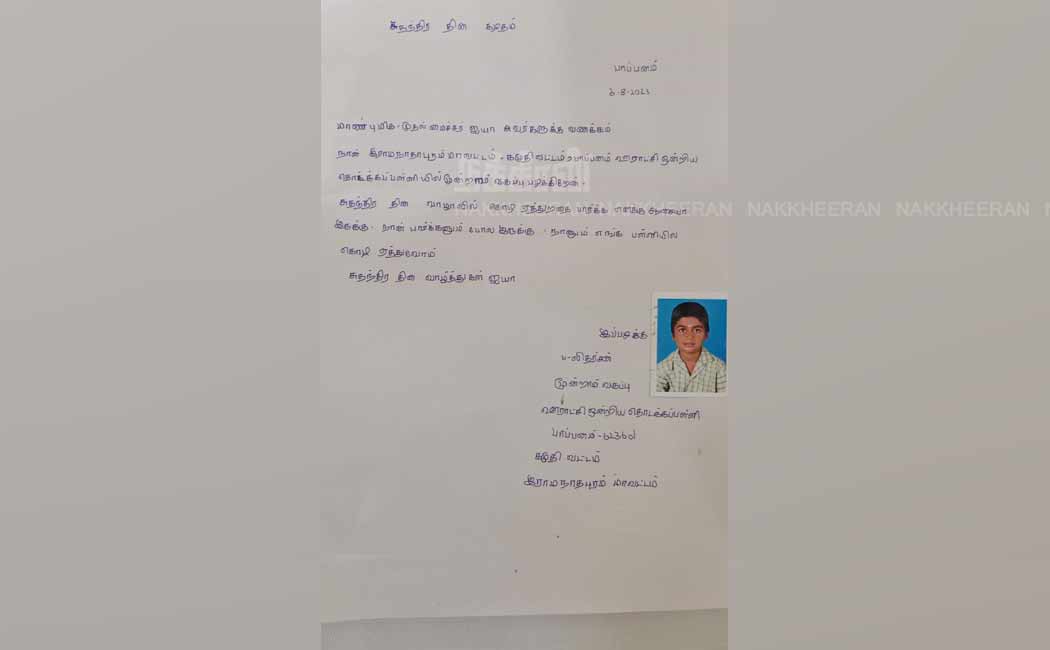 சுதந்திர தின கடிதம்
பாப்பனம்
மாண்புமிகு முதலமைச்சர் ஐயா அவர்களுக்கு வணக்கம்
நான் இராமநாதாபுரம் மாவட்டம். கமுதி வட்டம் பாப்பனம் ஊராட்சி ஒன்றிய
தொடக்கப்பள்ளியில் மூன்றாம் வகுப்பு படிக்கிறேன்.
நக்கீரன்
சுதந்திர தின கொடி ஏத்துறதை பார்க்க எனக்கு
இருக்கு. நான் போல இருக்கு. நானும் எங்க பள்ளியில
கொடி ஏத்துவோம்
சுதந்திர தின வாழ்த்துகள் ஐயா
NAKKHEERAN NAKKHEERAN NAKKHEERAN
இப்படிக்கு
மூன்றாம் வகுப்பு
ஊராட்சி ஒன்றிய தொடக்கப்பள்ளி
பாப்பனம்-
கமுதி வட்டம்
இராமநாதபுரம் மாவட்டம்